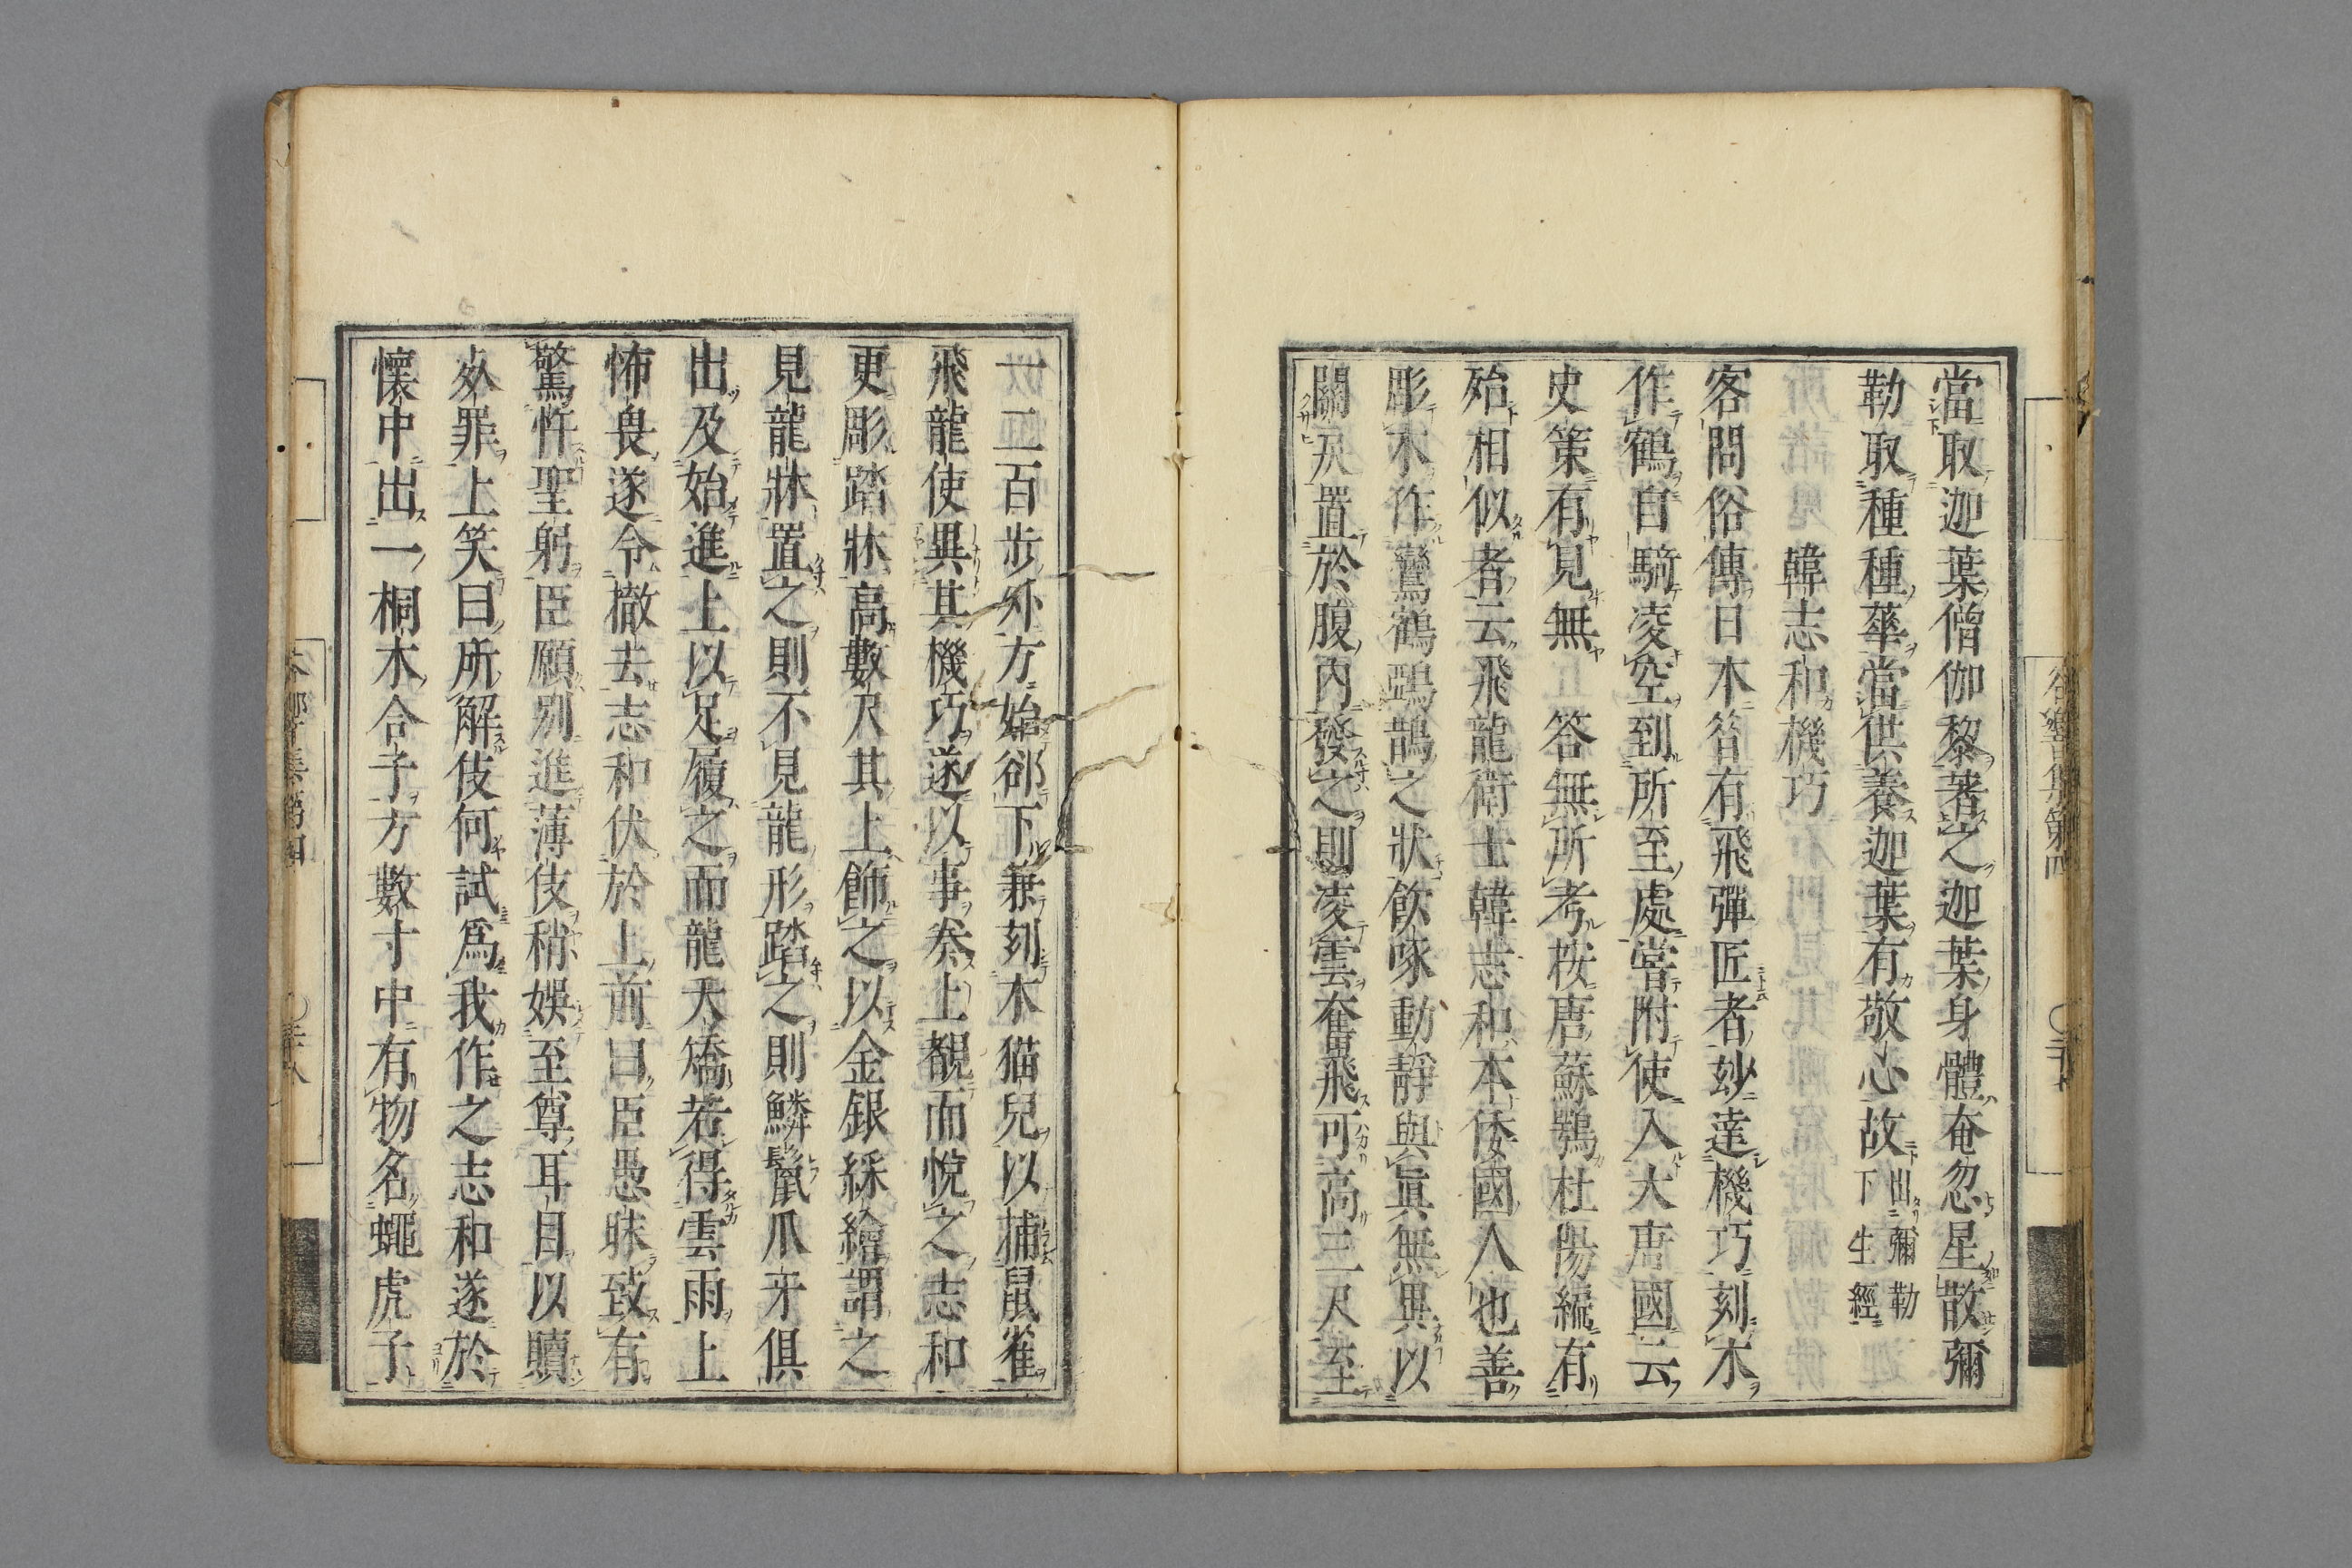 當取迦葉僧伽黎著之迦葉身體奄忽星散彌
勒取種種華當供養迦葉有敬心故出彌勒下生經
韓志和機巧
客問俗傳日本昔有飛彈匠者妙達機巧刻木
作鶴自騎凌空到所至處嘗附使入大唐國云
史策有見無答無所考按唐蘇鶚杜陽編有
殆相似者云飛龍衛士韓志和本倭國人也善
彫木作鸞鶴鵶鵲之狀飲啄動靜與眞無異以
關戾置於腹内發之則凌雲奮飛可高三尺至
一二百步外方始郤下兼刻木猫兒以捕鼠雀
飛龍使異其機巧遂以事奏上覩而悅之志和
更彫踏牀高數尺其上飾之以金銀綵繪謂之
見龍牀置之則不見龍形踏之則鱗鬣爪牙俱
出及始進上以足履之而龍夭矯若得雲雨上
怖畏遂令撤去志和伏於上前曰臣愚昧致有
驚忤聖躬臣願別進薄伎稍娛至尊耳目以贖
死罪上笑曰所解伎何試爲我作之志和遂於
懷中出一桐木合子方數寸中有物名蠅虎子